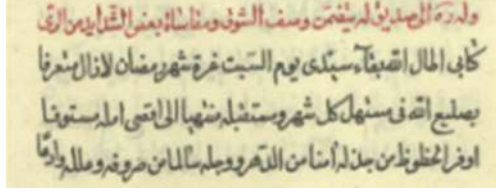 وله ره الى صديق له يتضمن وصف الشوق ومقاساة بعض الشدايد من الرى
كتابى اطال الله بقاء سيدى يوم السبت غرة شهر رمضان لازال متعرفا
بصليع الله فى مستهل كل شهر ومستقبله منتهيا الى اقصى امله مستوفيا
اوفر الحظوظ من جذله آمنا من الدهر ووجله سالما من صروفه وملله وادقا